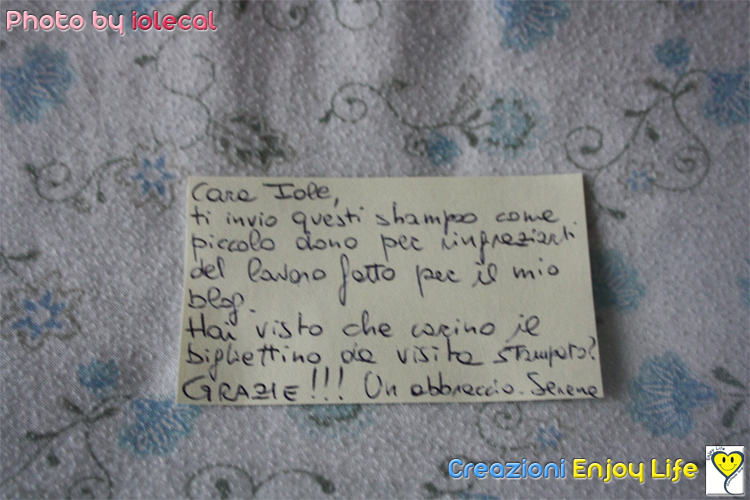 Photo by iolecal
Cara Iole,
ti invio questi shampoo come
piccolo dono per ringraziarti
del lavoro fatto per il mio
blog.
Hai visto che carino il
bigliettino da visita stampato?
GRAZIE!!! Un abbraccio. Serena
Creazioni Enjoy Life